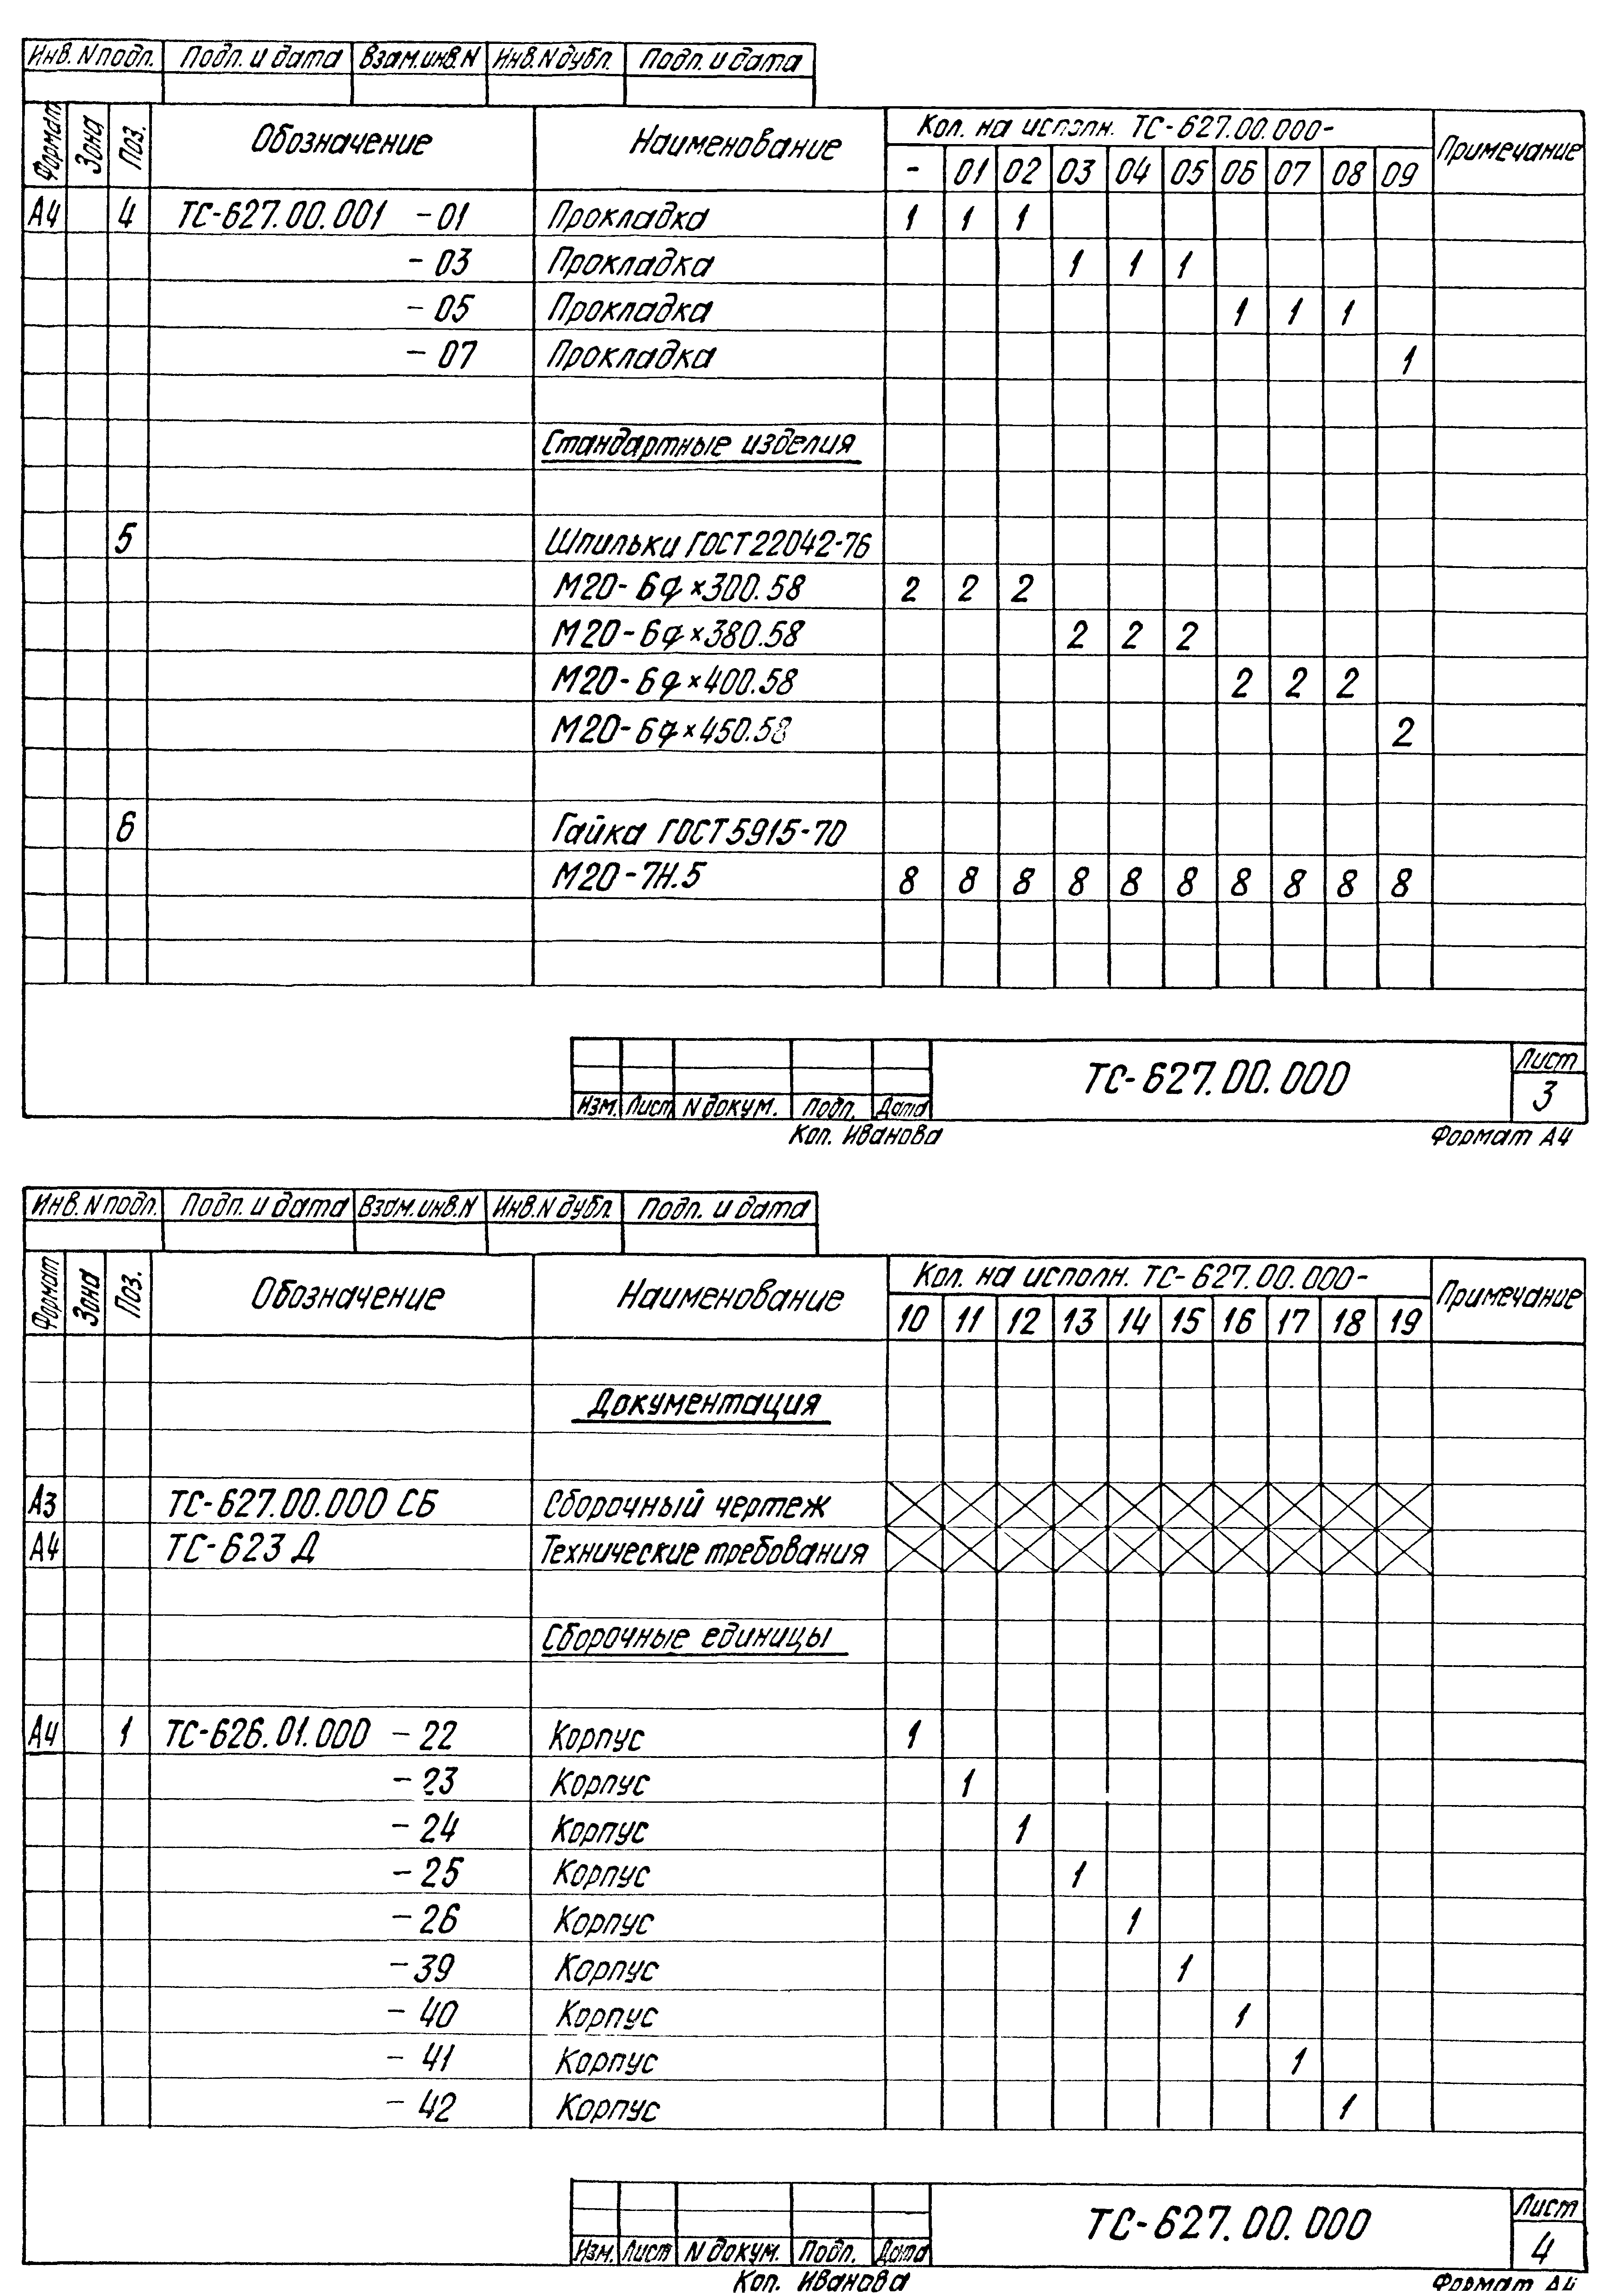 Инв. N подл. Подп. и дата Взам. инв. N Инв. N дубл. Подп. и дата
Формат Зона Поз. Обозначение Наименование Кол. на исполн. ТС-627.00.000- Примечание
- 01 02 03 04 05 06 07 08 09
А4 4 ТС-627.00.001 -01 Прокладка 1 1 1
-03 Прокладка 1 1 1
-05 Прокладка 1 1 1
-07 Прокладка 1
Стандартные изделия
5 Шпильки ГОСТ 22042-76
М20-6g×300.58 2 2 2
М20-6g×380.58 2 2 2
М20-6g×400.58 2 2 2
М20-6g×450.58 2
6 Гайка ГОСТ 5915-70
М20-7Н.5 8 8 8 8 8 8 8 8 8 8
ТС-627.00.000 Лист
3
Изм. Лист N докум. Подп. Дата
Коп. Иванова Формат А4
Инв. N подл. Подп. и дата Взам. инв. N Инв. N дубл. Подп. и дата
Формат Зона Поз. Обозначение Наименование Кол. на исполн. ТС-627.00.000- Примечание
10 11 12 13 14 15 16 17 18 19
Документация
А3 ТС-627.00.000 СБ Сборочный чертеж
А4 ТС-623 Д Технические требования
Сборочные единицы
А4 1 ТС-626.01.000 -22 Корпус 1
-23 Корпус 1
-24 Корпус 1
-25 Корпус 1
-26 Корпус 1
-39 Корпус 1
-40 Корпус 1
-41 Корпус 1
-42 Корпус 1
ТС-627.00.000 Лист
4
Изм. Лист N докум. Подп. Дата
Коп. Иванова Формат А4